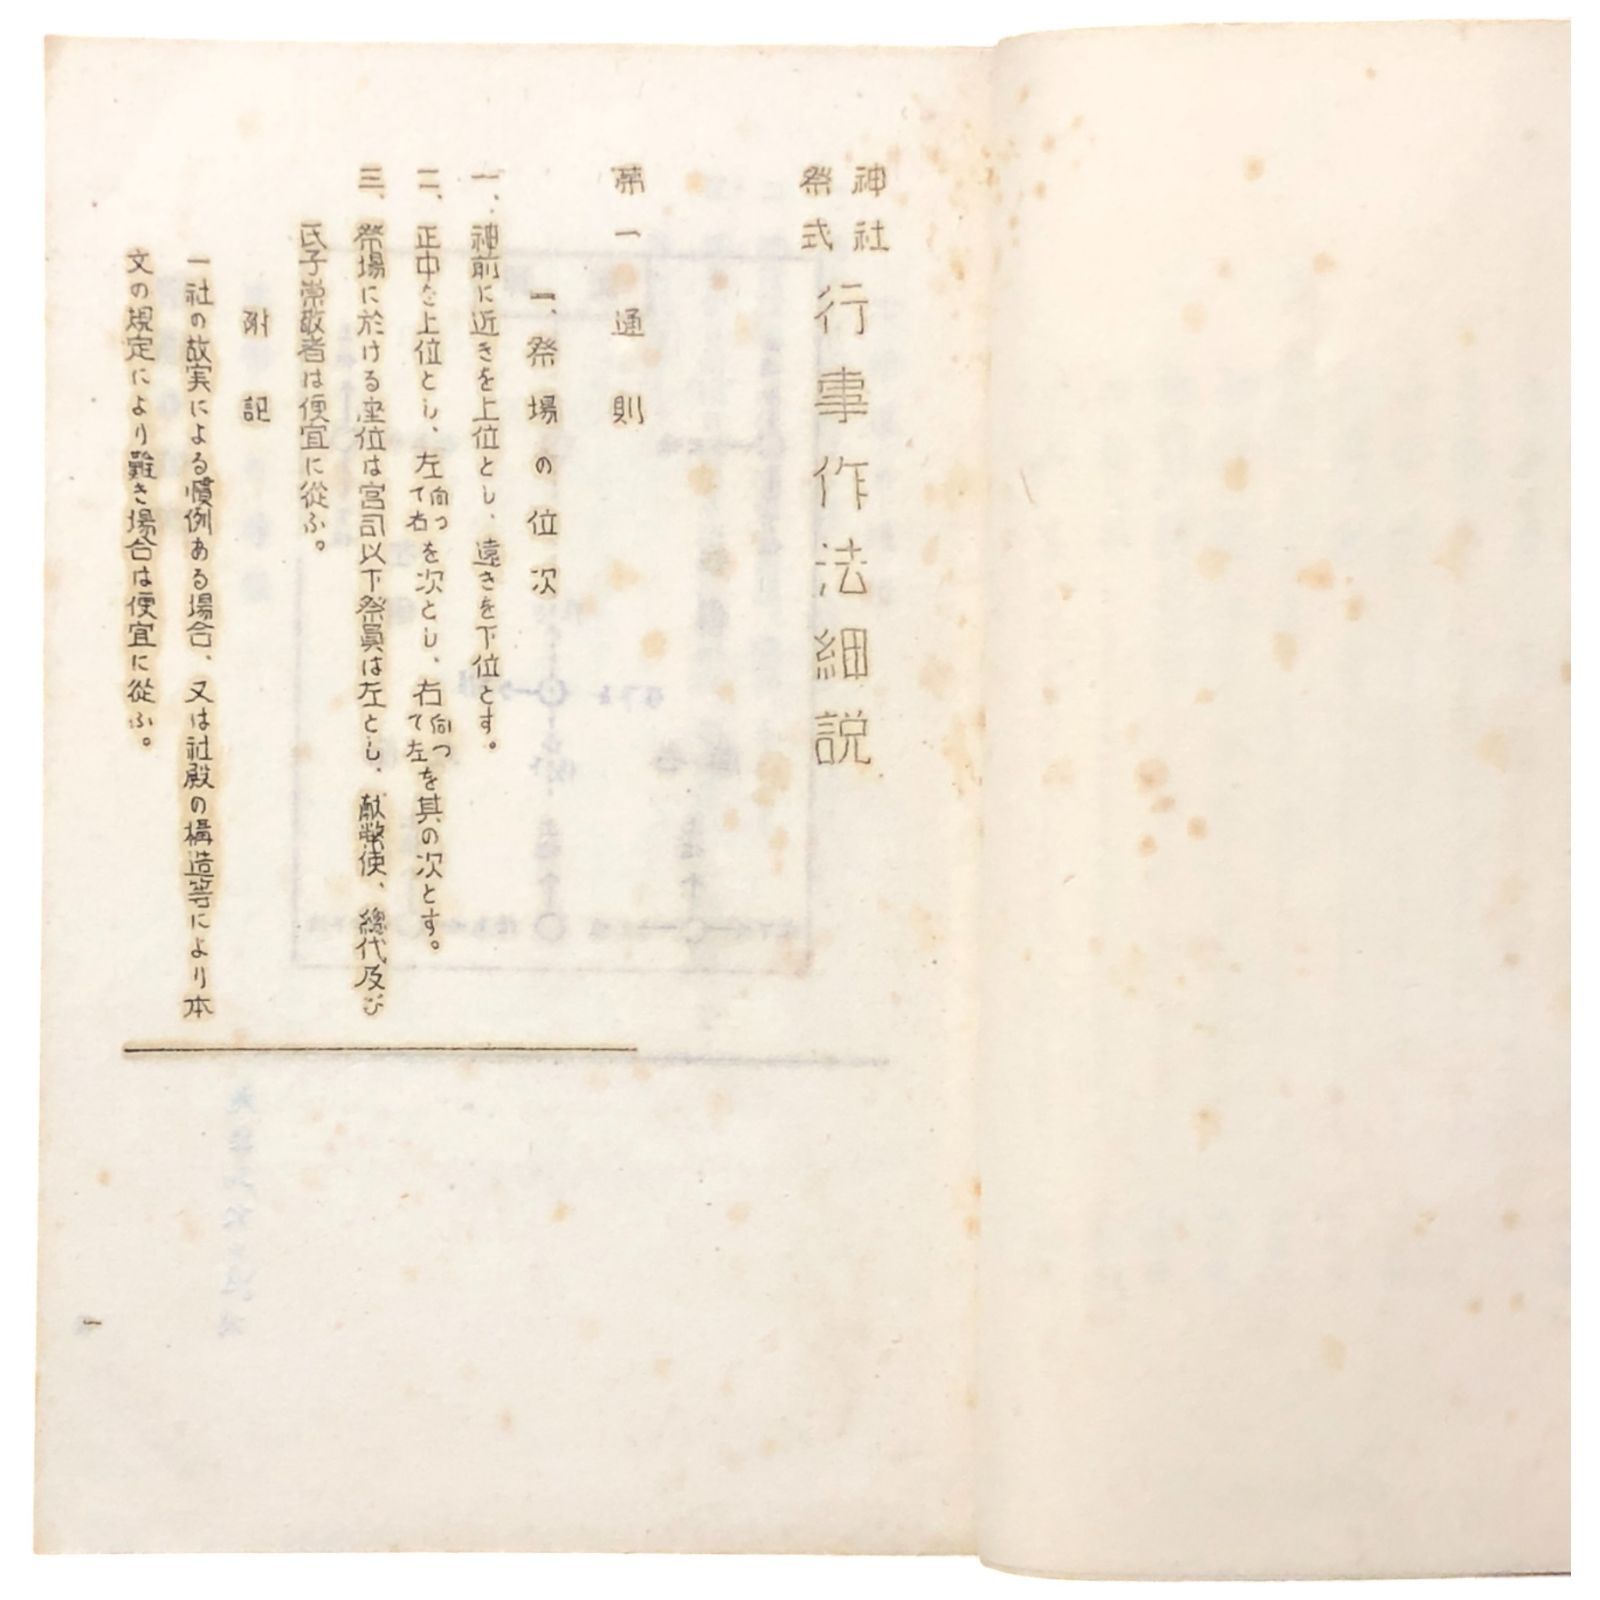 神社祭式行事作法細説
第一通則
一、祭場の位次
一、神前に近きを上位とし、遠きを下位とす。
二、正中を上位とし、左向つて右を次とし、右向つて左を其の次とす。
三、祭場に於ける座位は宮司以下祭員は左とし、献幣使、總代及び
氏子崇敬者は便宜に從ふ。
附記
一社の故実による慣例ある場合、又は社殿の構造等により本
文の規定により難き場合は便宜に從ふ。
一